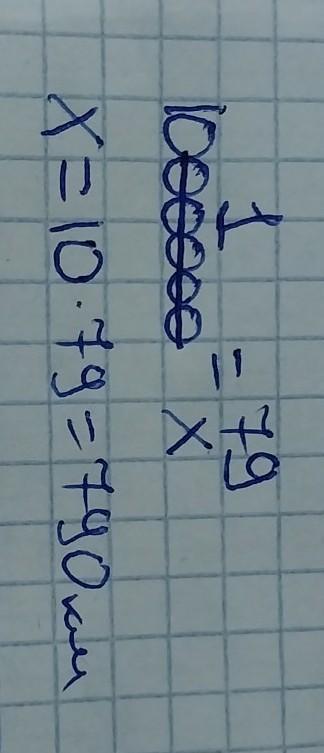 1 = 79
1000000 x
x = 10 · 79 = 790 км